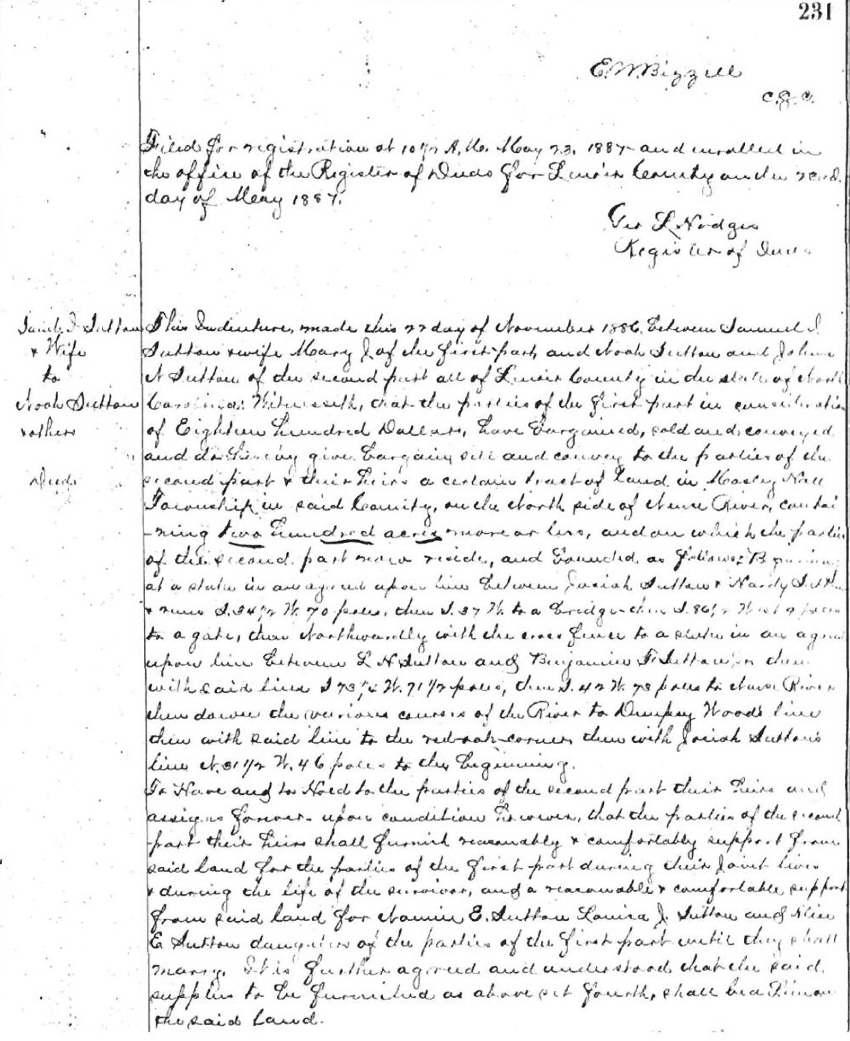 231
E. W. Bizzell
C.S.C.
Filed for registration at 10 1/2 A.M. May 23, 1887 and enrolled in
the office of the Register of Deeds for Lenoir County on the
day of May 1887.
Geo L Hodges
Register of Deeds
Sutton
& Wife
to
Noah Sutton
& others
Deed
This Indenture, made this 22 day of November 1886, between Samuel I.
Sutton & wife Mary J. of the first part, and Noah Sutton and John
N Sutton of the second part all of Lenoir County in the state of North
Carolina: Witnesseth, that the parties of the first part in consideration
of Eighteen hundred Dollars, have bargained, sold and conveyed
and do hereby give bargain, sell and convey to the parties of the
second part & their heirs a certain tract of land in Mosely Hall
Township in said County, on the North side of Neuse River, contai
-ning two hundred acres more or less, and on which the parties
of the second part now reside, and bounded as follows: Beginning
at a stake in an agreed upon line between Josiah Sutton & Hardy Sutton
& runs S. 34 1/2 W. 70 poles, then S. 37 W. to a bridge then S. 86 1/2 West 9 poles
to a gate, then Northwardly with the cross fence to a stake in an agreed
upon line between L. H. Sutton and Benjamin F. Sutton then
with said line S 73 W. 71 1/2 poles, then S. 42 W. 78 poles to Neuse River
then down the various courses of the River to Dempsy Wood's line
then with said line to the red-oak corner, then with Josiah Sutton's
line N. 31 1/2 W. 46 poles to the beginning.
To Have and to Hold to the parties of the second part their heirs and
assigns forever upon condition however, that the parties of the second
part their heirs shall furnish reasonably & comfortably support from
said land for the parties of the first part during their joint lives
& during the life of the survivor, and a reasonable & comfortable support
from said land for Namin E. Sutton Louisa J. Sutton and
E. Sutton daughters of the parties of the first part until they shall
marry. It is further agreed and understood that the said
supplies to be furnished as above set fourth, shall be a lien on
the said land.